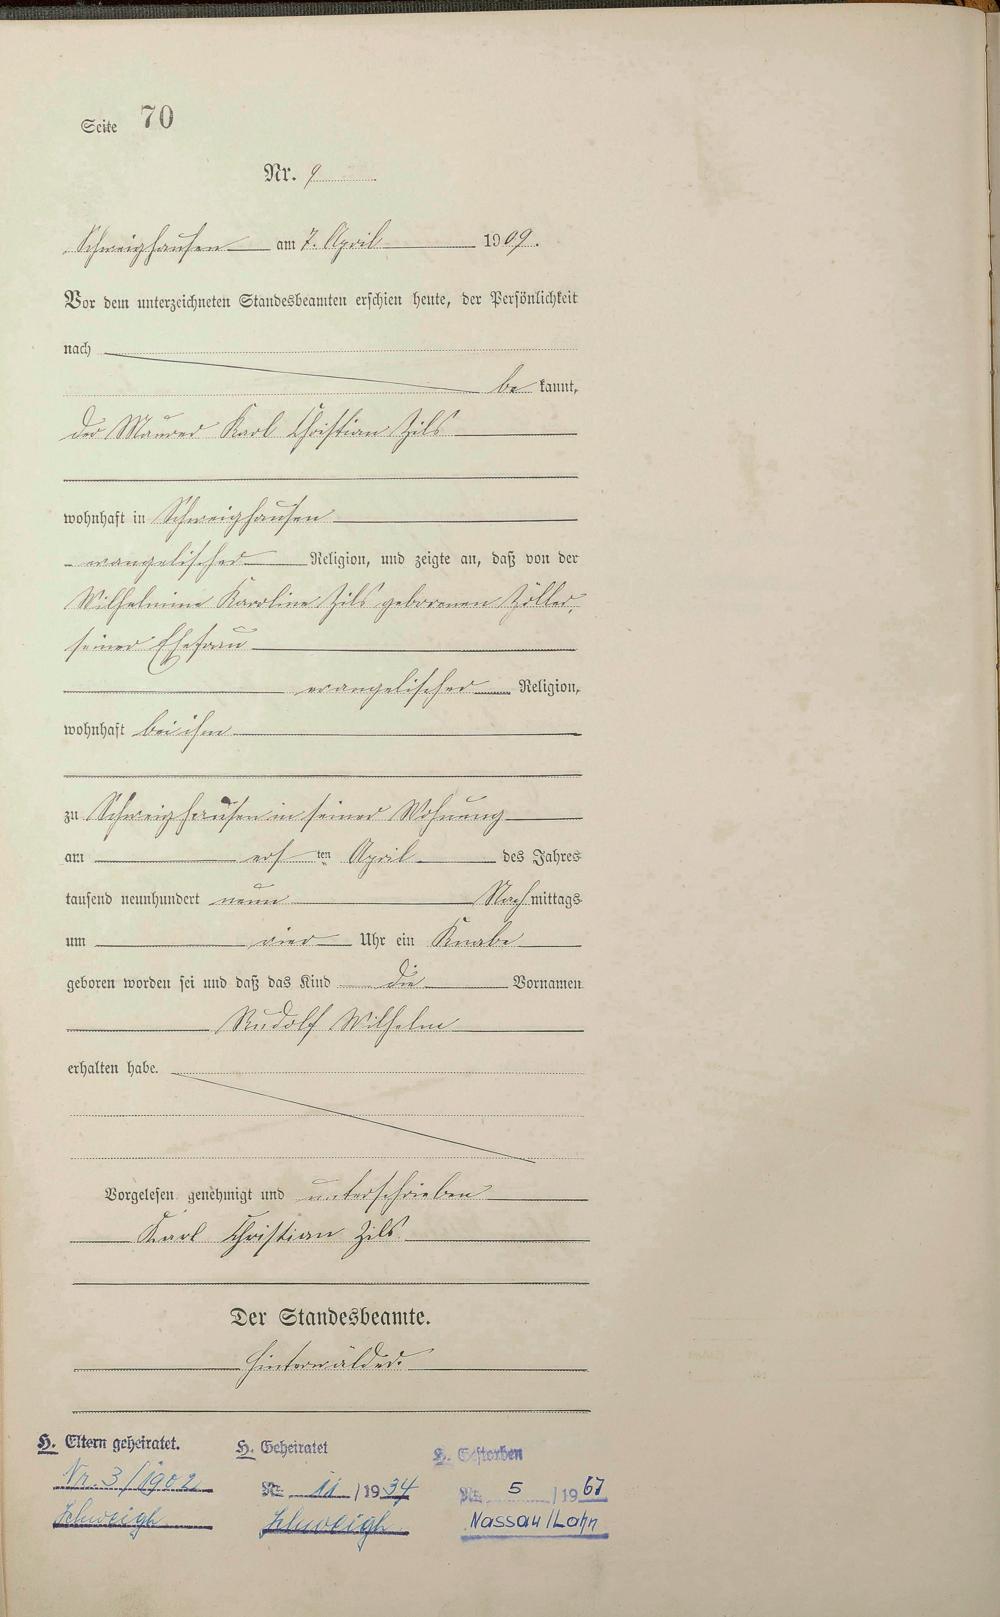 Seite 70
Nr. 9
Schweighausen am 7. April 1909.
Vor dem unterzeichneten Standesbeamten erschien heute, der Persönlichkeit
nach
be kannt,
der Maurer Karl Christian Zils
wohnhaft in Schweighausen
evangelischer Religion, und zeigte an, daß von der
Wilhelmine Karoline Zils geborenen Zöller,
seiner Ehefrau
evangelischer Religion,
wohnhaft bei ihm
zu Schweighausen in seiner Wohnung
am ersten April des Jahres
tausend neunhundert neun Nachmittags
um vier Uhr ein Knabe
geboren worden sei und daß das Kind die Vornamen
Rudolf Wilhelm
erhalten habe.
Vorgelesen, genehmigt und unterschrieben
Karl Christian Zils
Der Standesbeamte.
Hinterwälder.
H. Eltern geheiratet.
Nr. 3/1902
Schweigh
H. Geheiratet
Nr. 11 / 1934
Schweigh
H. Gestorben
Nr. 5 / 1967
Nassau/Lahn